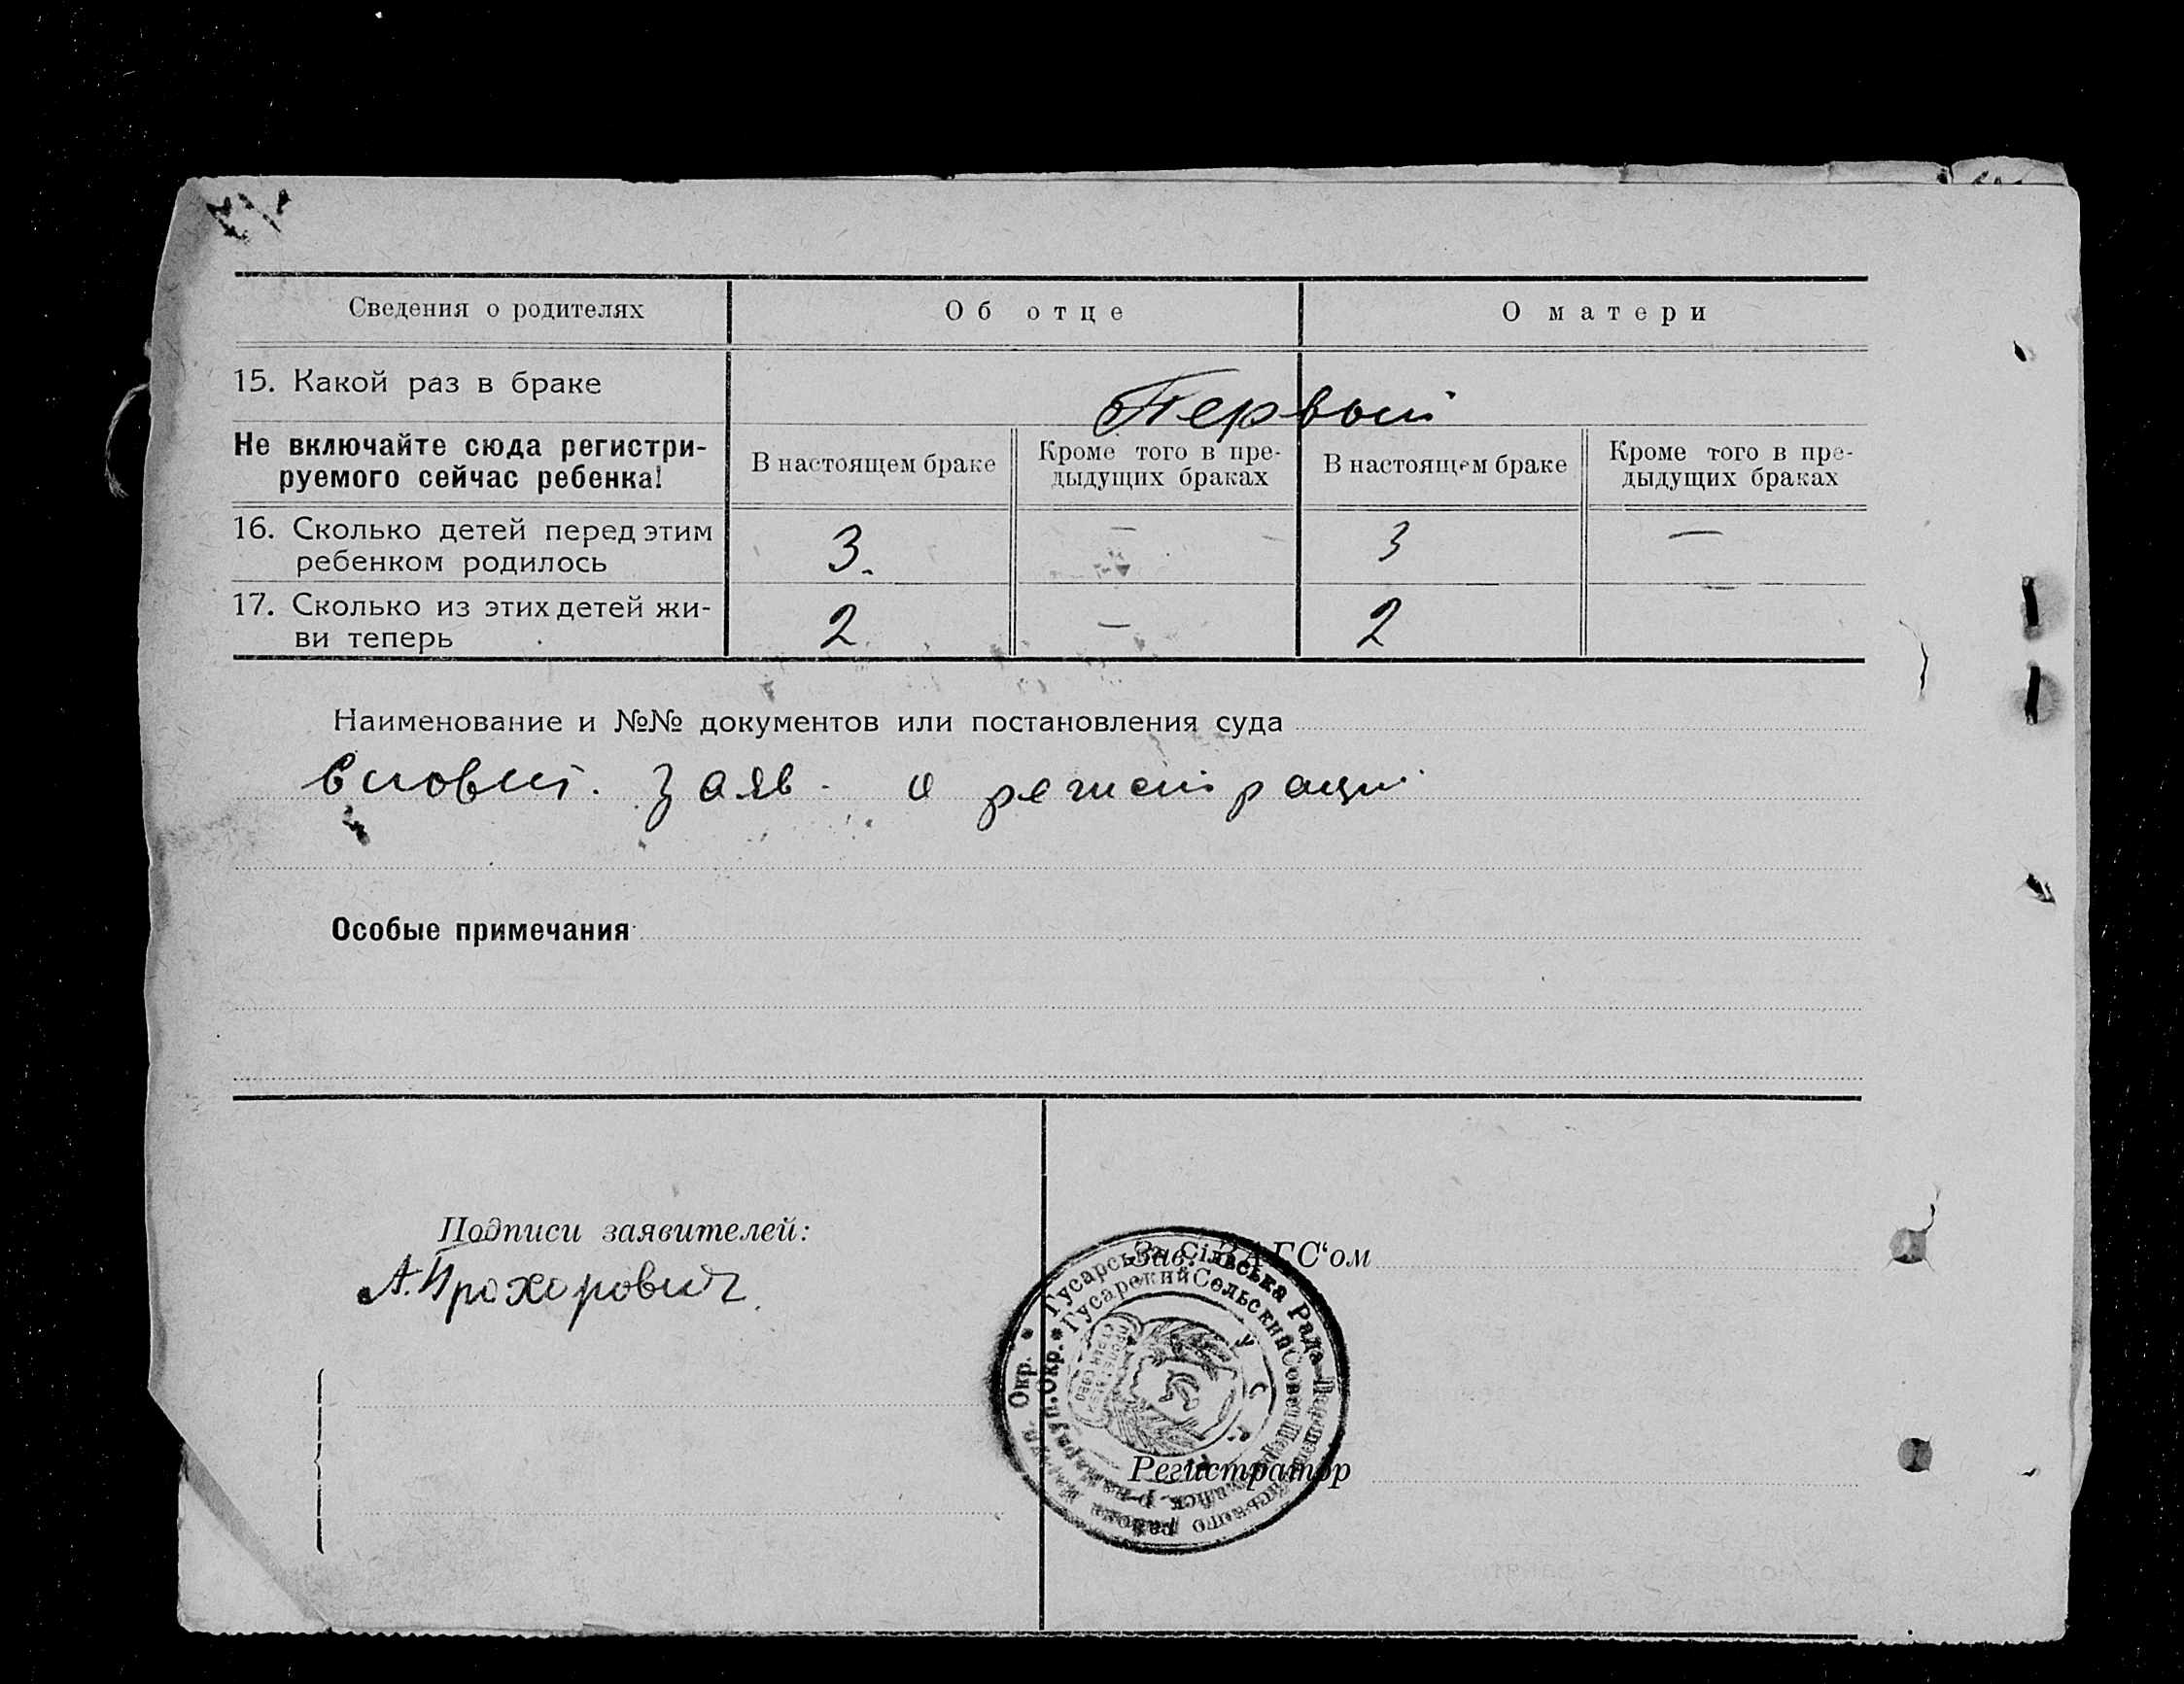 Сведения о родителях
Об отце
О матери
15. Какой раз в браке
Первый
Не включайте сюда регистри-
руемого сейчас ребенка!
В настоящем браке
Кроме того в пре-
дыдущих браках
В настоящем браке
Кроме того в пре-
дыдущих браках
16. Сколько детей перед этим
ребенком родилось
3.
—
3
—
17. Сколько из этих детей жи-
ви теперь
2
—
2
Наименование и №№ документов или постановления суда
заяв. о регистраци
Особые примечания
Подписи заявителей:
А. Прохорович.
Зав. ЗАГС'ом
Регистратор
* Гусарська Сільська Рада
района Окр.
* Гусарский Сельский Совет
р-на Окр.
У С